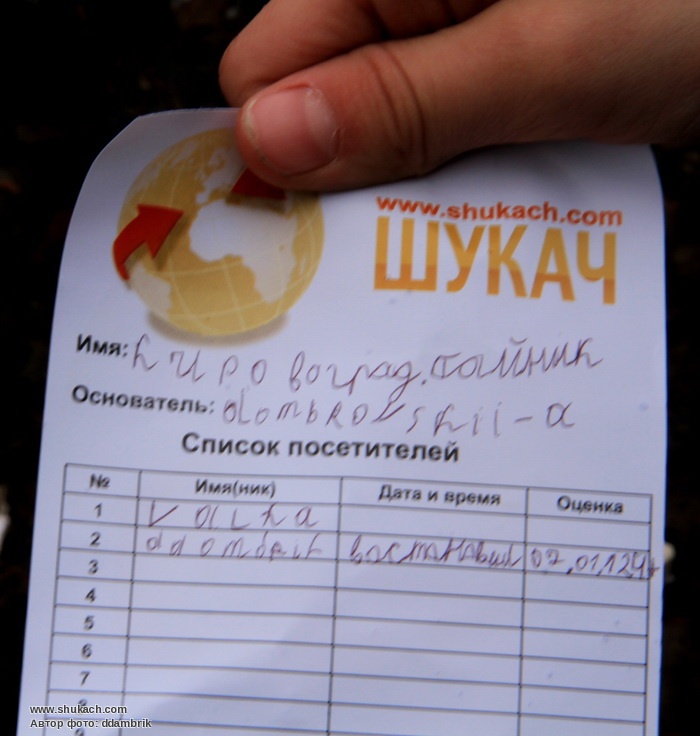 www.shukach.com
ШУКАЧ
Имя: Кировоград.тайник
Основатель: dombrovskii-a
Список посетителей
№ Имя(ник) Дата и время Оценка
1 Valka
2 ddombrik 07.01.12
3
4
5
6
7
8
9
www.shukach.com
Автор фото: ddambrik